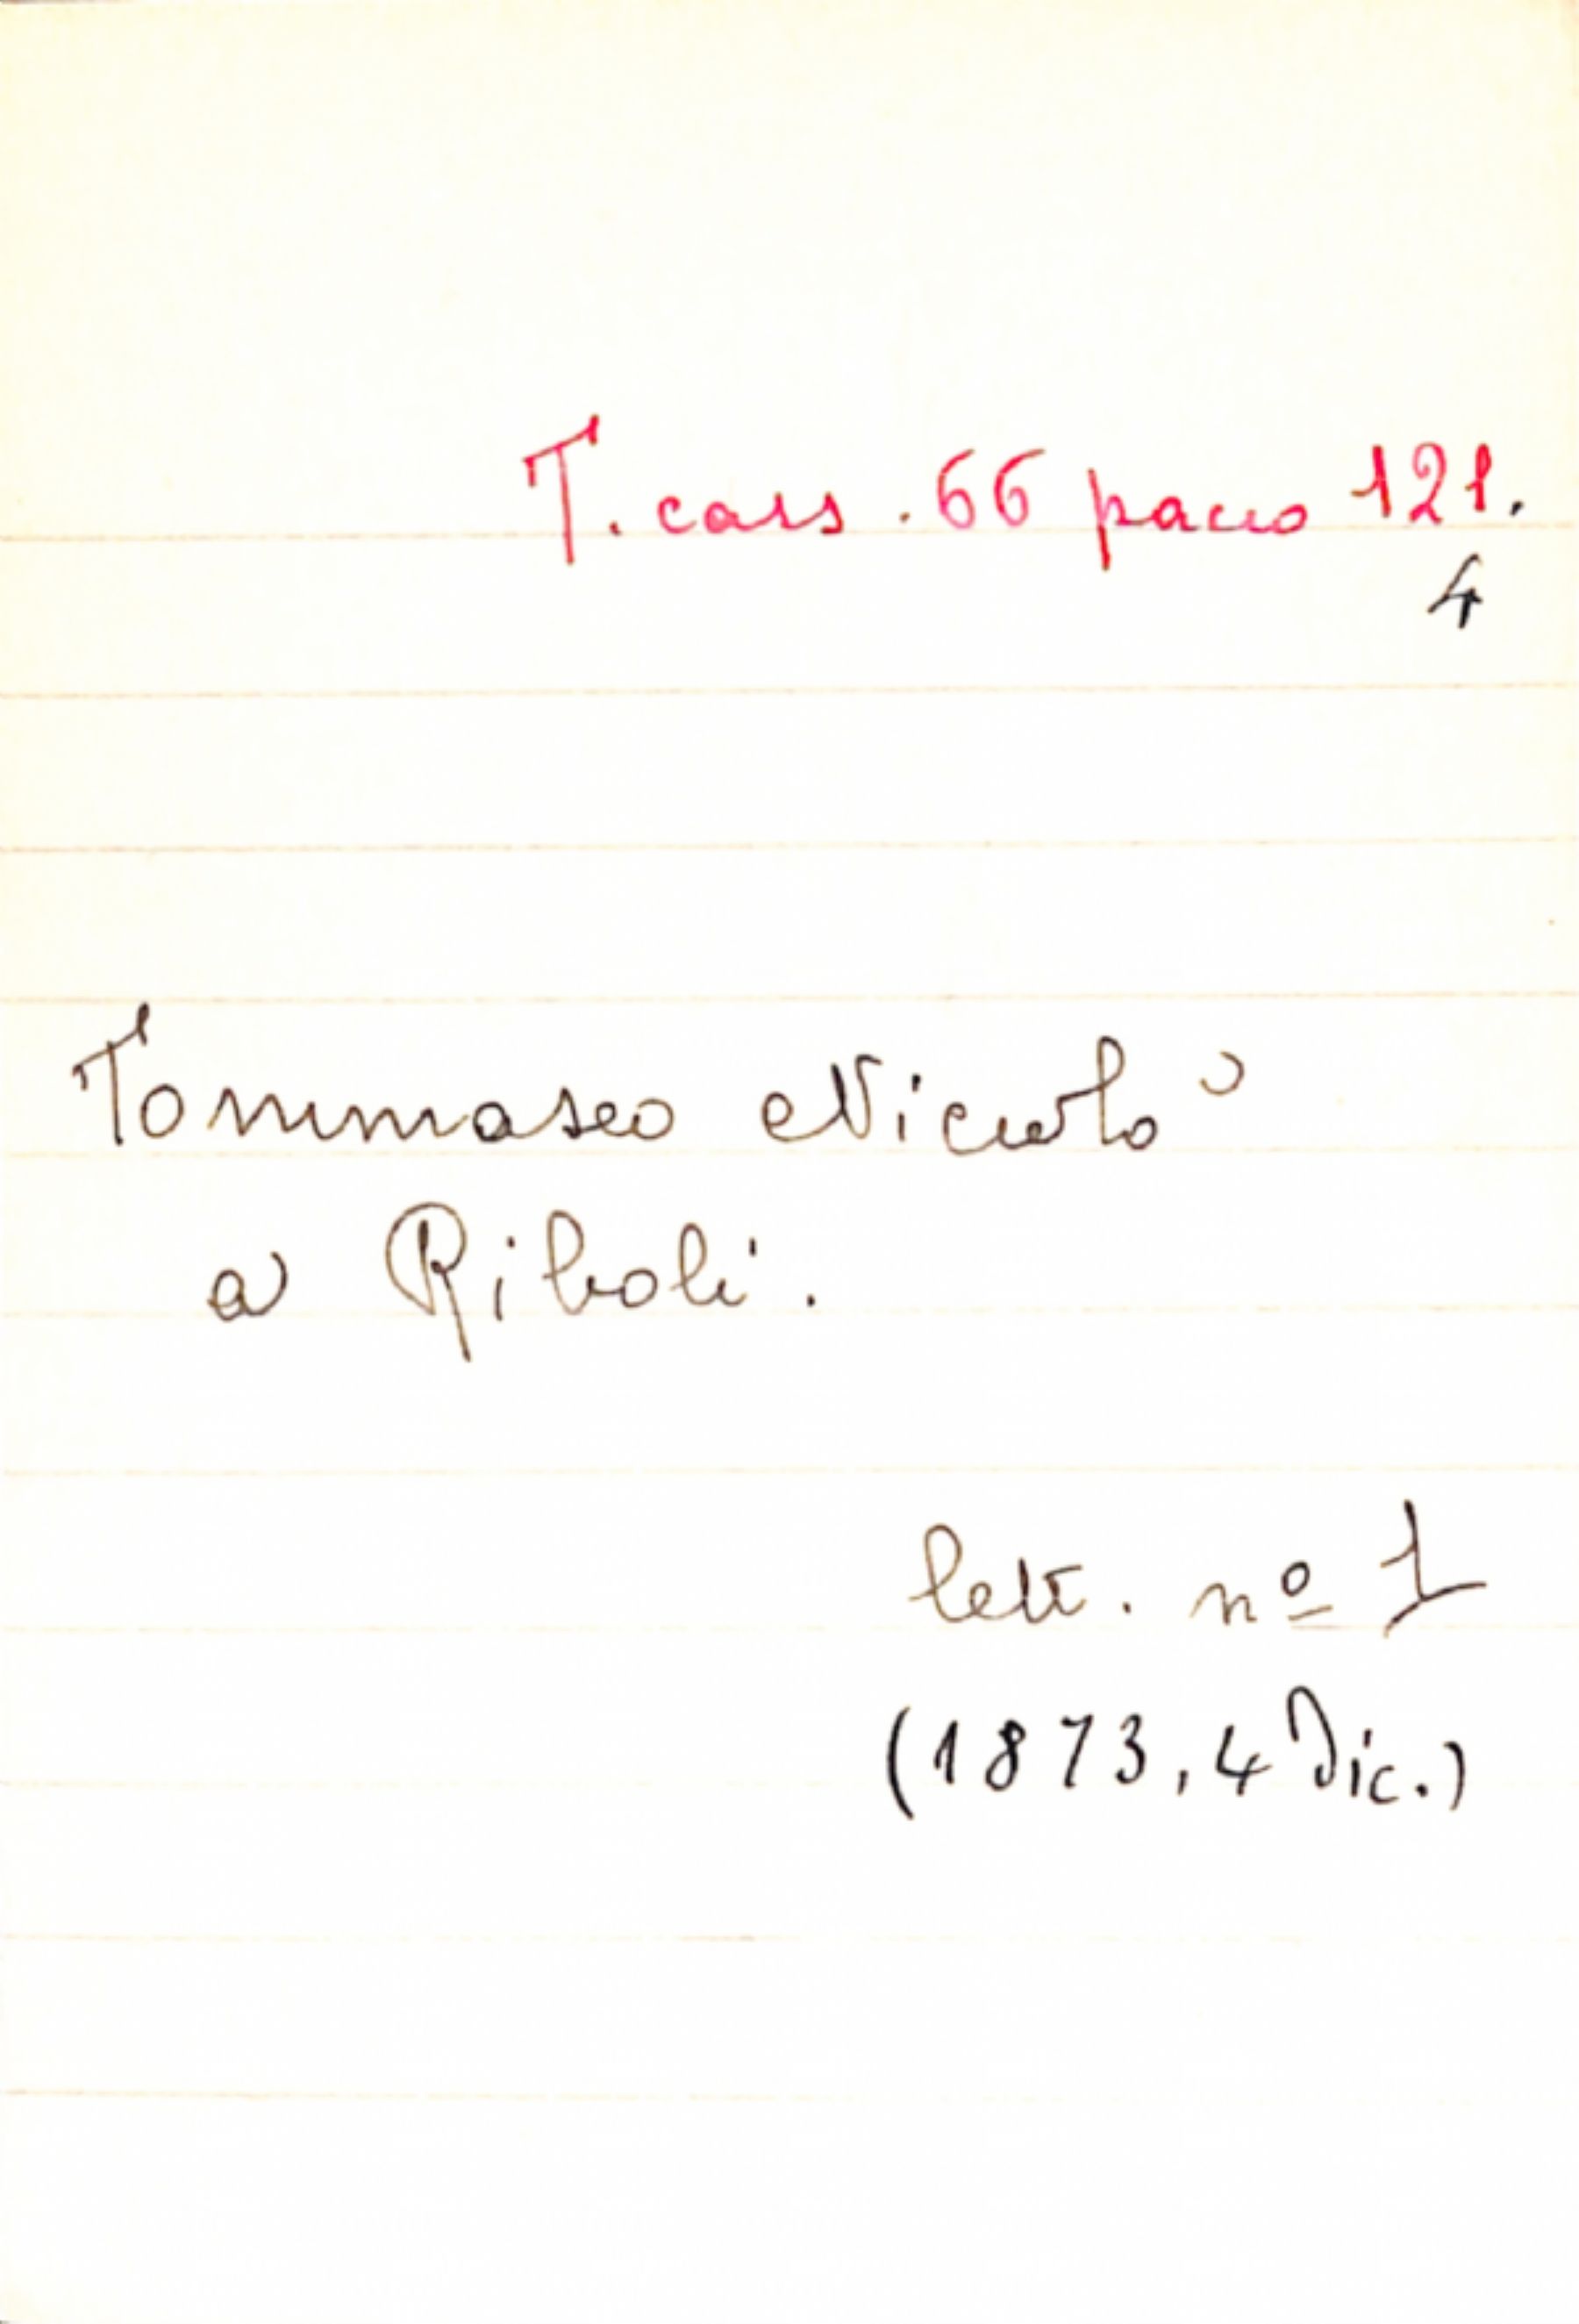 T. cass. 66 pacco 121.
4
Tommaseo Niccolò
a Riboli.
lett. nº 1
(1873, 4 Dic.)